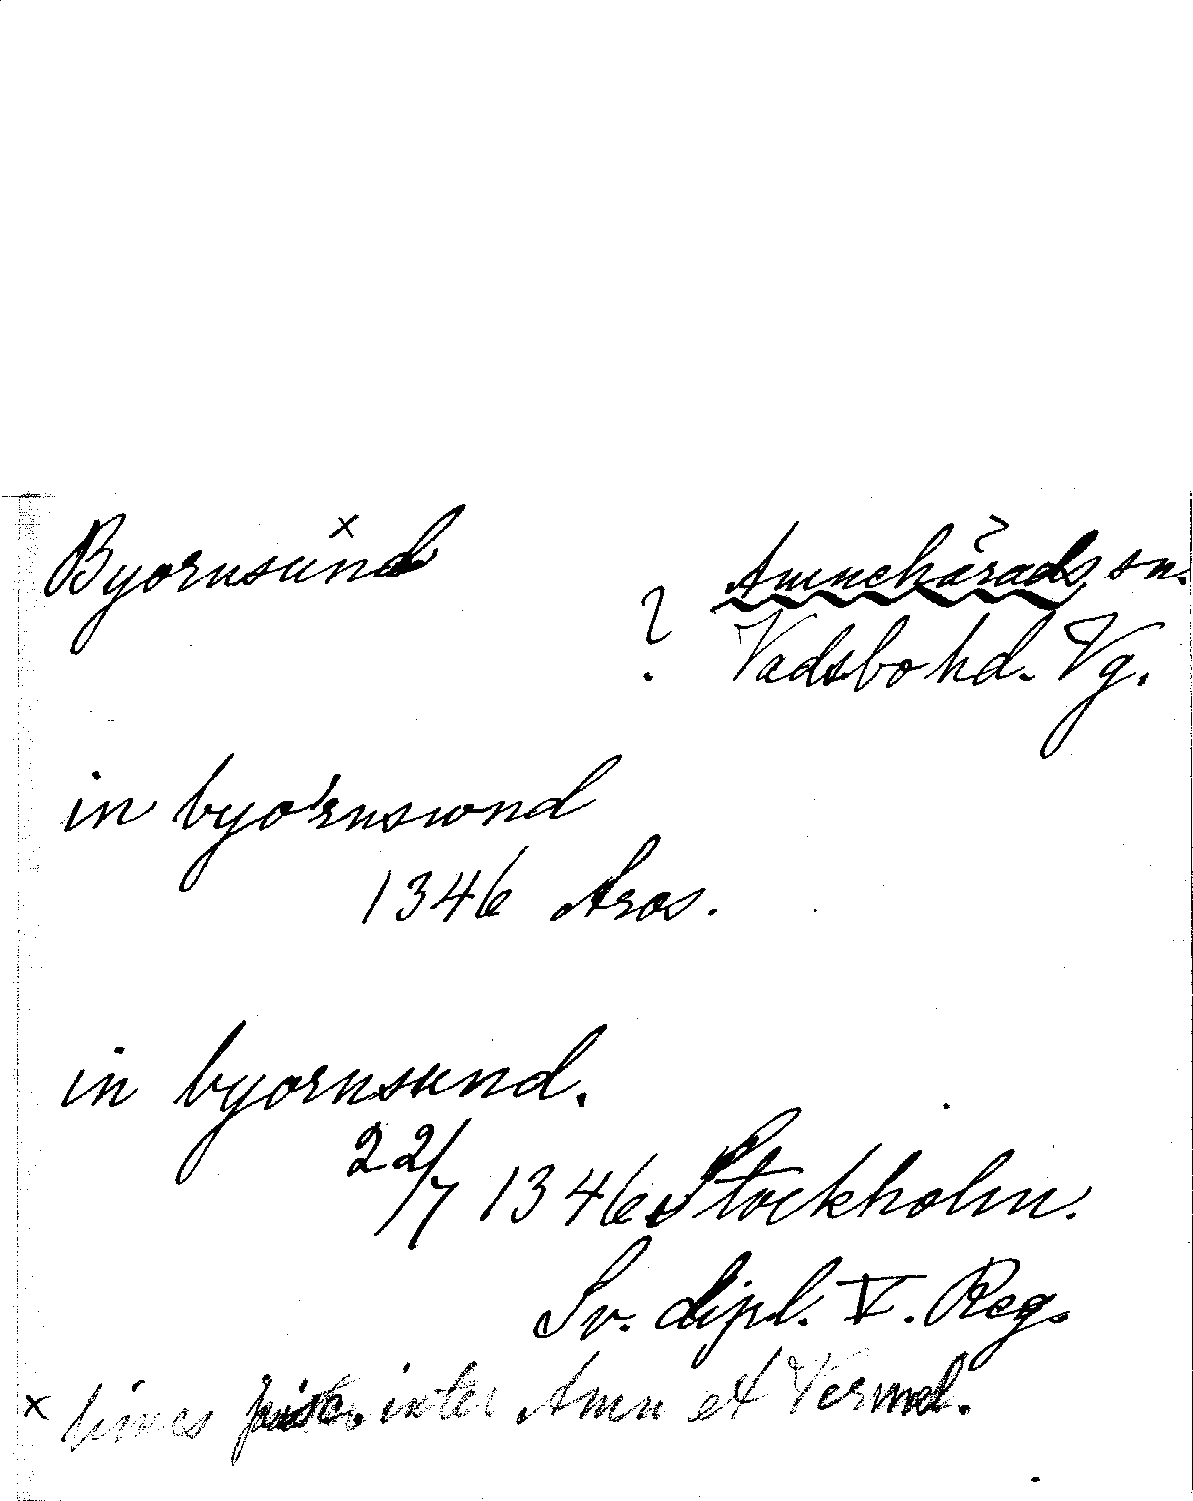 Byornsund ×
Amnehärads sn.
? Vadsbo hd. Vg.
in byo'rnswnd
1346 Aros.
in byornsund.
22/7 1346 Stockholm.
Sv. dipl. V. Reg.
× limes pisc. inter Amn et Vermd.